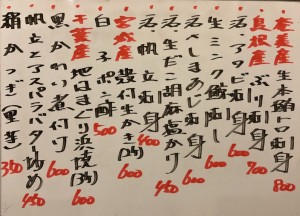 奄美産 生本鮪トロ刺身 800
島根産 ぶり刺身 700
活〆アジ刺身 600
生ミンク鯨刺身 600
活〆しまあじ刺身 600
活〆生だこ胡麻塩かり 450
活帆立刺身 400
宮城産 殻付生かき(3ヶ) 600
白子ポン酢 500
千葉産 地はまぐり浜焼(3ヶ) 600
黒かれい煮付け 600
帆立とアスパラバター炒め 450
稲かつぎ(里芋) 350